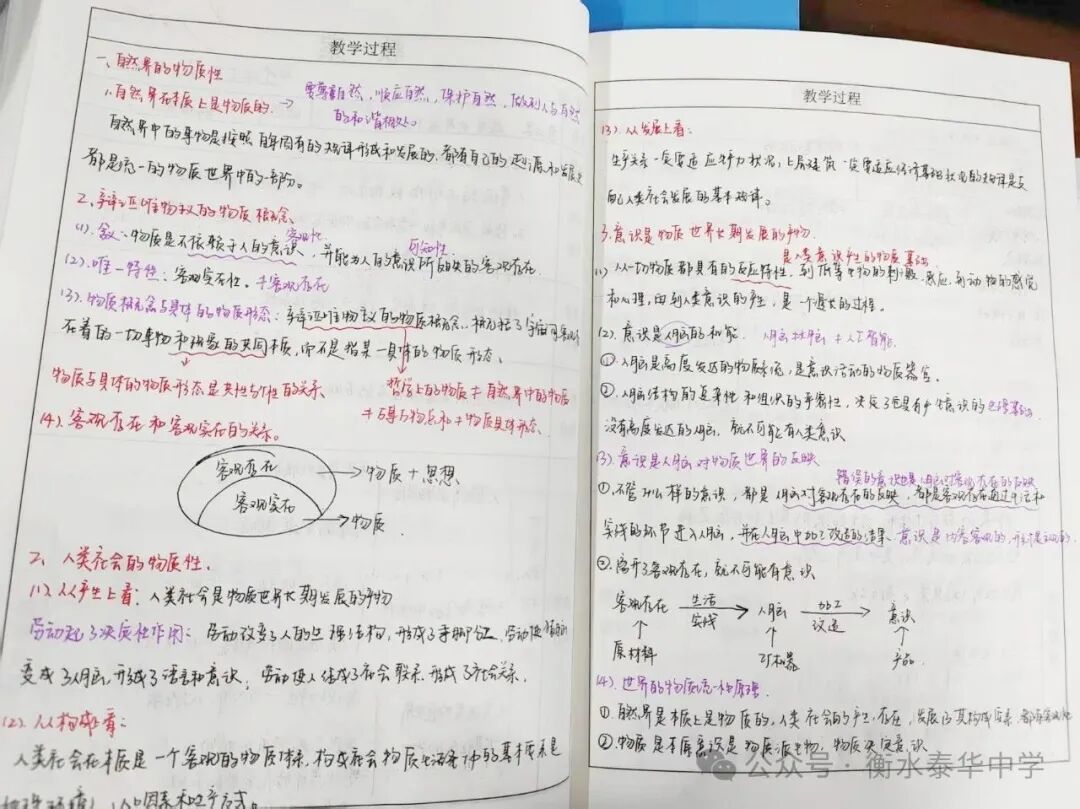 教学过程
一、自然界的物质性
1.自然界在本质上是物质的. → 要尊重自然,顺应自然,保护自然,做到人与自然
的和谐相处。
自然界中的事物是按照自身固有的规律形成和发展的.都有自己的起源和发展史
都是统一的物质世界中的一部分。
2.辩证唯物主义的物质概念
客观性 可知性
物质是不依赖于人的意识,并能为人的意识所反映的客观存在.
(2).唯一特性:客观实在性. ≠客观存在
(3).物质概念与具体的物质形态:辩证唯物主义的物质概念,概括了宇宙间客观
存在着的一切事物和现象的共同本质,而不是指某一具体的物质形态.
物质与具体的物质形态是共性与个性的关系
哲学上的物质≠自然界中的物质
≠物质具体形态.
(4).客观存在和客观实在的关系。
客观存在 →物质+思想
客观实在 →物质
2、人类社会的物质性.
(1)从产生上看:人类社会是物质世界长期发展的产物
劳动起了决定性作用:劳动改变了人的生理结构,形成了手脚分工,劳动使猿脑
变成了人脑,形成了语言和意识,劳动使人结成了社会联系,形成了社会关系.
(2).从构成看:
人类社会在本质是一个客观的物质体系.构成社会物质生活条件的基本要素是
人口因素和生产方式。
教学过程
(3).从发展上看:
生产关系一定要适应生产力状况,上层建筑一定要适应经济基础状况的规律是支
配人类社会发展的基本规律。
3.意识是物质世界长期发展的产物.
是人类意识产生的物质基础
(1)从一切物质都具有的反应特性,到低等生物的刺激感应,到动物的感觉
和心理,再到人类意识的产生,是一个漫长的过程.
(2).意识是人脑的机能. 人脑≠人工智能.
①.人脑是高度发达的物质系统,是意识活动的物质器官。
②.人脑结构的复杂性和组织的严密性,决定了它具有产生意识的生理基础.
没有高度发达的人脑,就不可能有人类意识
(3).意识是人脑对物质世界的反映
错误的意识也是人脑对客观存在的反映
①.不管什么样的意识,都是人脑对客观存在的反映,都是客观存在通过生活和
实践的环节进入人脑,并在人脑中加工改造的结果.意识是内容客观的,形式是主观的.
②.离开了客观存在,就不可能有意识
客观存在 生活实践→ 人脑 加工改造→ 意识
原材料 机器 产品.
(4).世界的物质统一性原理.
①.自然界是本质上是物质的,人类社会的产生,存在,发展及其构成要素,都有客观性
②.物质是本原意识是物质派生物,物质决定意识
公众号·衡水泰华中学